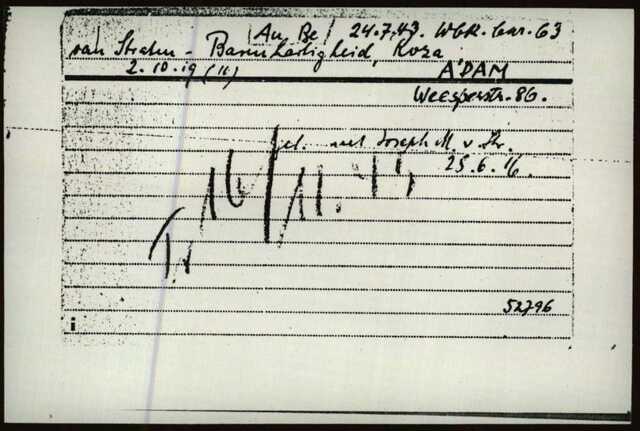 Au. Be / 24.7.43. Wbk. bar. 63
van Straten - Barmhartigheid, Roza
2. 10. 19 (11) A'DAM
Weesperstr. 86.
gel. met Joseph M. v. Str.
25. 6. 16.
T. 16/11. 43
52796
i